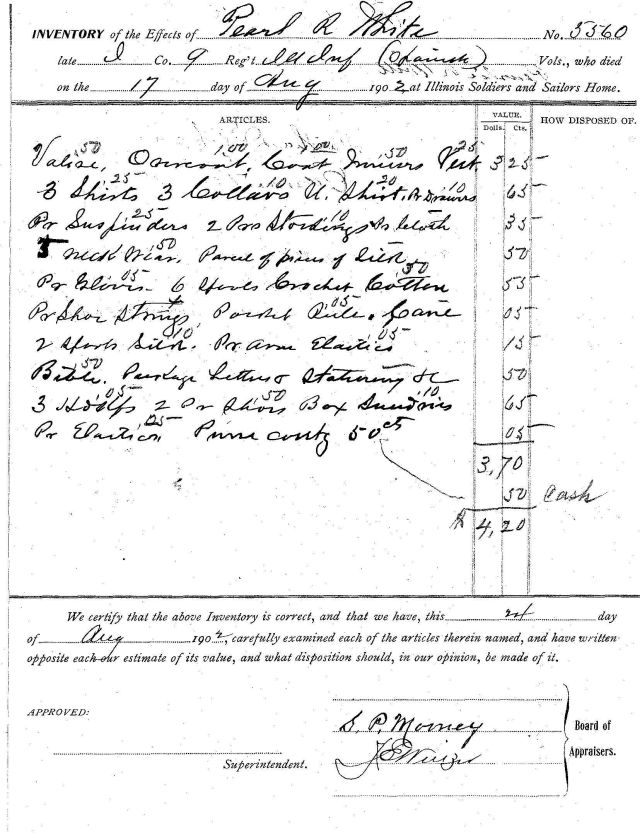 INVENTORY of the Effects of Pearl R White No. 5560
late I Co. 9 Reg't Ill Inf (Spanish) Vols., who died
on the 17 day of Aug 1902, at Illinois Soldiers and Sailors Home.
ARTICLES. VALUE. HOW DISPOSED OF.
Dolls. Cts.
50 1.00 1.00 50 25
Valise, Overcoat, Coat Vest. 3 25
25 10 20 10
3 Shirts 3 Collars U. Shirt. Pr Drawers 65
25 10
Pr Suspinders 2 Prs Stockings 35
50
Neck Wear, Parcel of pieces of Silk 50
05 50
Pr Gloves 6 Spools Crochet Cotton 55
05
Pr Shoe Strings, Pocket Cane 05
10 05
2 Spools Silk. Pr Arm Elastics 15
50
Bible. Package Letters & Stationery &c 50
05 50 10
3 Hdkfs 2 Pr Shoes Box Sundries 65
05
Pr Elastics Purse 50 cts 05
3,70
50 Cash
$ 4,20
We certify that the above Inventory is correct, and that we have, this day
of Aug 1902, carefully examined each of the articles therein named, and have written
opposite each our estimate of its value, and what disposition should, in our opinion, be made of it.
APPROVED:
S. P. Mooney
Board of
Appraisers.
Superintendent.